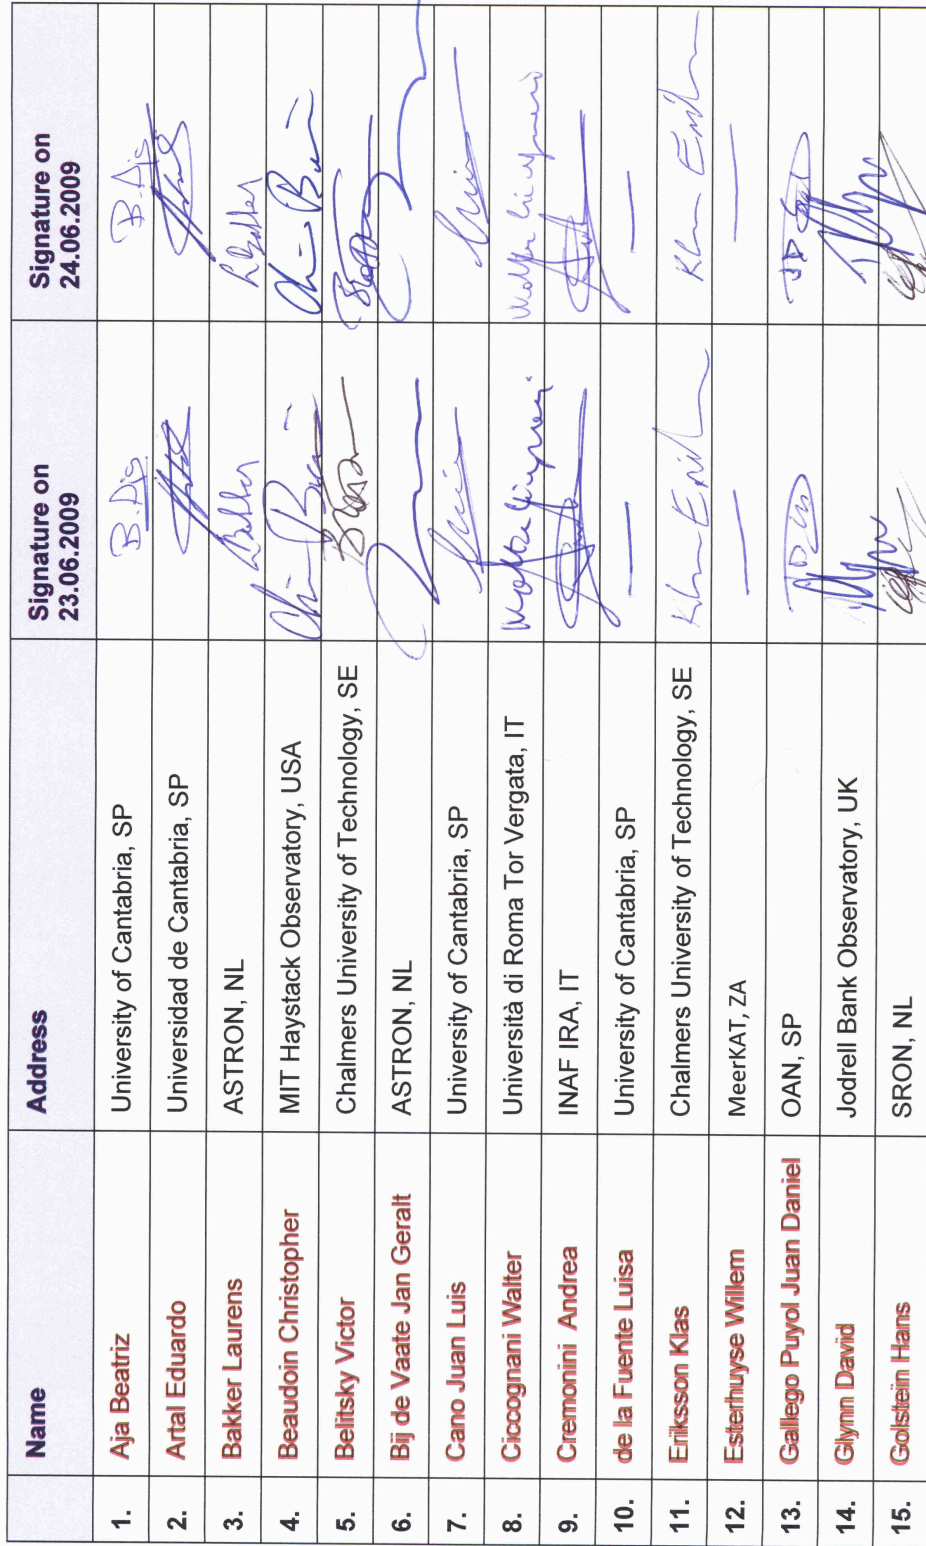 Name Address Signature on 23.06.2009 Signature on 24.06.2009
1. Aja Beatriz University of Cantabria, SP B. Aja B. Aja
2. Artal Eduardo Universidad de Cantabria, SP
3. Bakker Laurens ASTRON, NL LBakker LBakker
4. Beaudoin Christopher MIT Haystack Observatory, USA
5. Belitsky Victor Chalmers University of Technology, SE
6. Bij de Vaate Jan Geralt ASTRON, NL
7. Cano Juan Luis University of Cantabria, SP
8. Ciccognani Walter Università di Roma Tor Vergata, IT
9. Cremonini Andrea INAF IRA, IT
10. de la Fuente Luisa University of Cantabria, SP — —
11. Eriksson Klas Chalmers University of Technology, SE
12. Esterhuyse Willem MeerKAT, ZA — —
13. Gallego Puyol Juan Daniel OAN, SP
14. Glynn David Jodrell Bank Observatory, UK
15. Golstein Hans SRON, NL